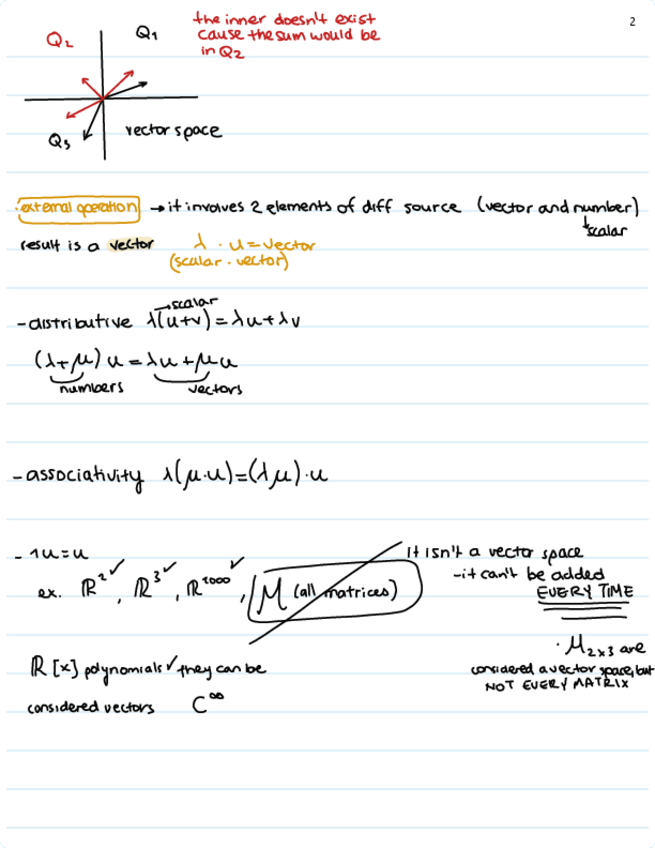 2
the inner doesn't exist
cause the sum would be
in Q2
Q2
Q1
Q3
vector space
external operation → it involves 2 elements of diff source (vector and number)
scalar
result is a vector λ · u = vector
(scalar · vector)
→scalar
- distributive λ(u+v) = λu + λv
(λ+μ) u = λu + μu
numbers vectors
- associativity λ(μ·u) = (λμ)·u
- 1u = u
ex. ℝ² ✓, ℝ³ ✓, ℝ²⁰⁰⁰ ✓, M (all matrices)
it isn't a vector space
- it can't be added
EVERY TIME
· M₂ₓ₃ are
considered a vector space, but
NOT EVERY MATRIX
ℝ[x] polynomials ✓ they can be
considered vectors C^∞